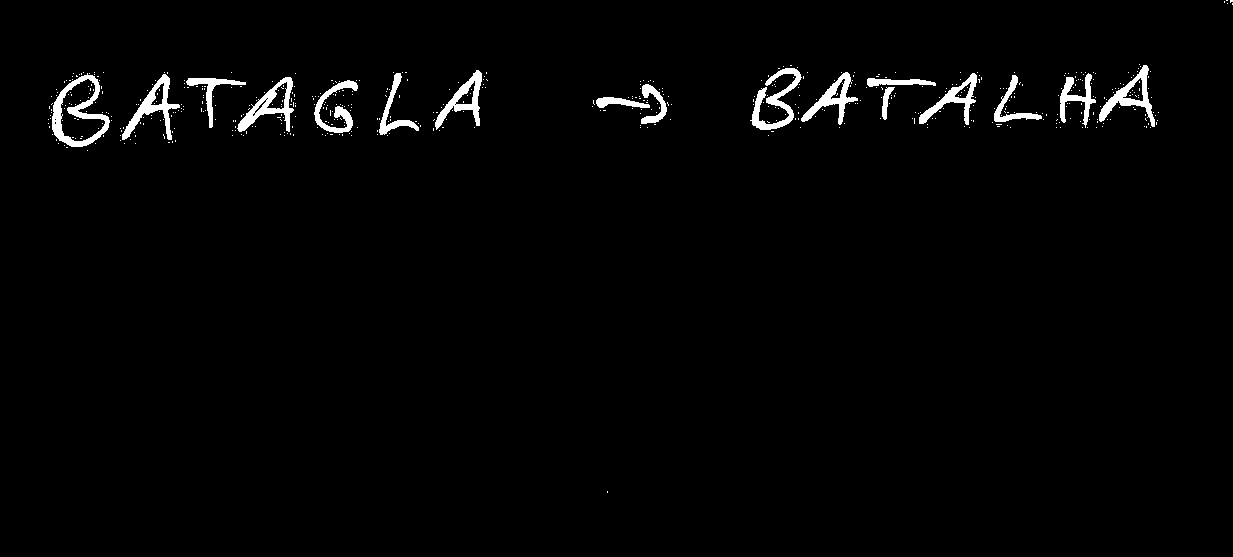 BATAGLA → BATALHA